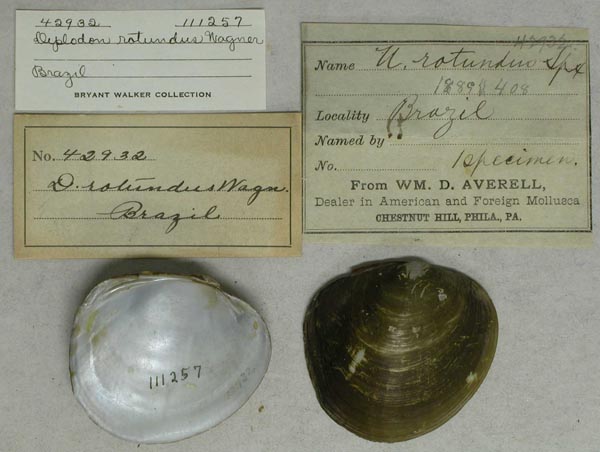 42932 111257
Diplodon rotundus Wagner
Brazil
BRYANT WALKER COLLECTION
No. 42932
D. rotundus Wagn.
Brazil
42932
Name U. rotundus Spx
Locality Brazil
Named by
No. 1 specimen.
From WM. D. AVERELL,
Dealer in American and Foreign Mollusca
CHESTNUT HILL, PHILA., PA.
111257